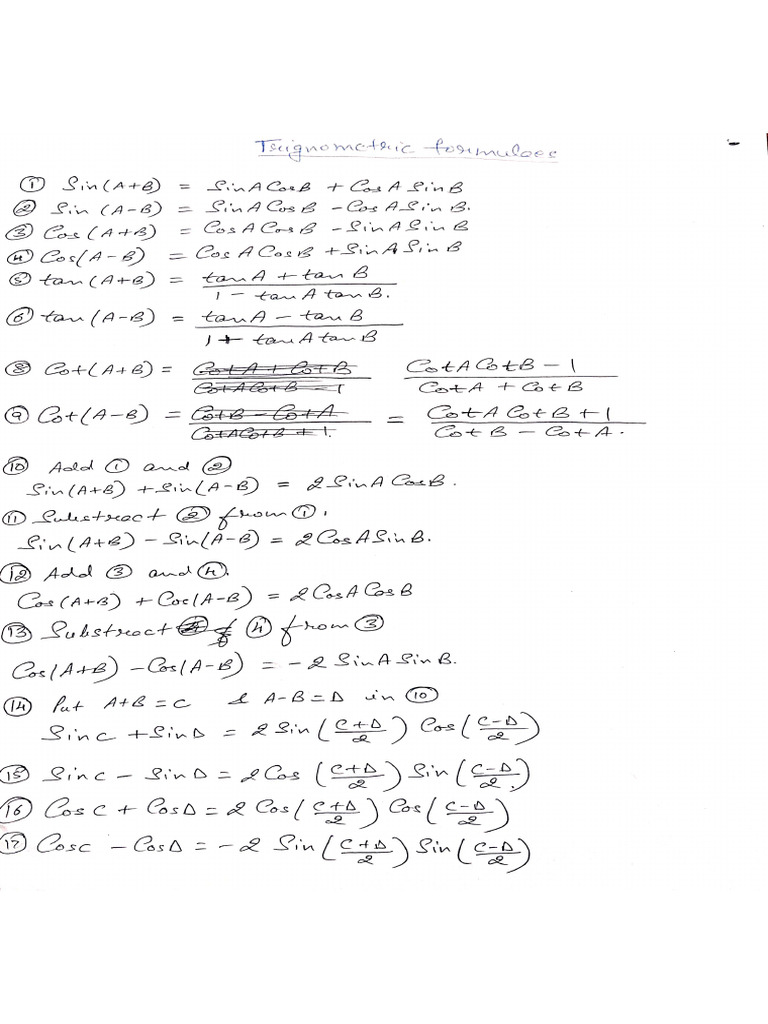 Trignometric formulaes
① Sin(A+B) = SinACosB + CosASinB
② Sin (A-B) = SinACosB - CosASinB.
③ Cos(A+B) = CosACosB - SinASinB
④ Cos(A-B) = CosACosB + SinASinB
⑤ tan(A+B) = (tanA + tanB)/(1 - tanAtanB).
⑥ tan(A-B) = (tanA - tanB)/(1 + tanAtanB)
⑧ Cot(A+B) = (CotA + CotB)/(CotACotB - 1) (CotACotB - 1)/(CotA + CotB)
⑨ Cot(A-B) = (CotB - CotA)/(CotACotB + 1). = (CotACotB + 1)/(CotB - CotA).
⑩ Add ① and ②
Sin(A+B) + Sin(A-B) = 2SinACosB.
⑪ Substract ② from ①.
Sin(A+B) - Sin(A-B) = 2CosASinB.
⑫ Add ③ and ④.
Cos(A+B) + Cos(A-B) = 2CosACosB
⑬ Substract ④ from ③
Cos(A+B) - Cos(A-B) = -2SinASinB.
⑭ Put A+B=C & A-B=D in ⑩
SinC + SinD = 2Sin((C+D)/2) Cos((C-D)/2)
⑮ SinC - SinD = 2Cos((C+D)/2) Sin((C-D)/2).
⑯ CosC + CosD = 2Cos((C+D)/2) Cos((C-D)/2)
⑰ CosC - CosD = -2 Sin((C+D)/2) Sin((C-D)/2)